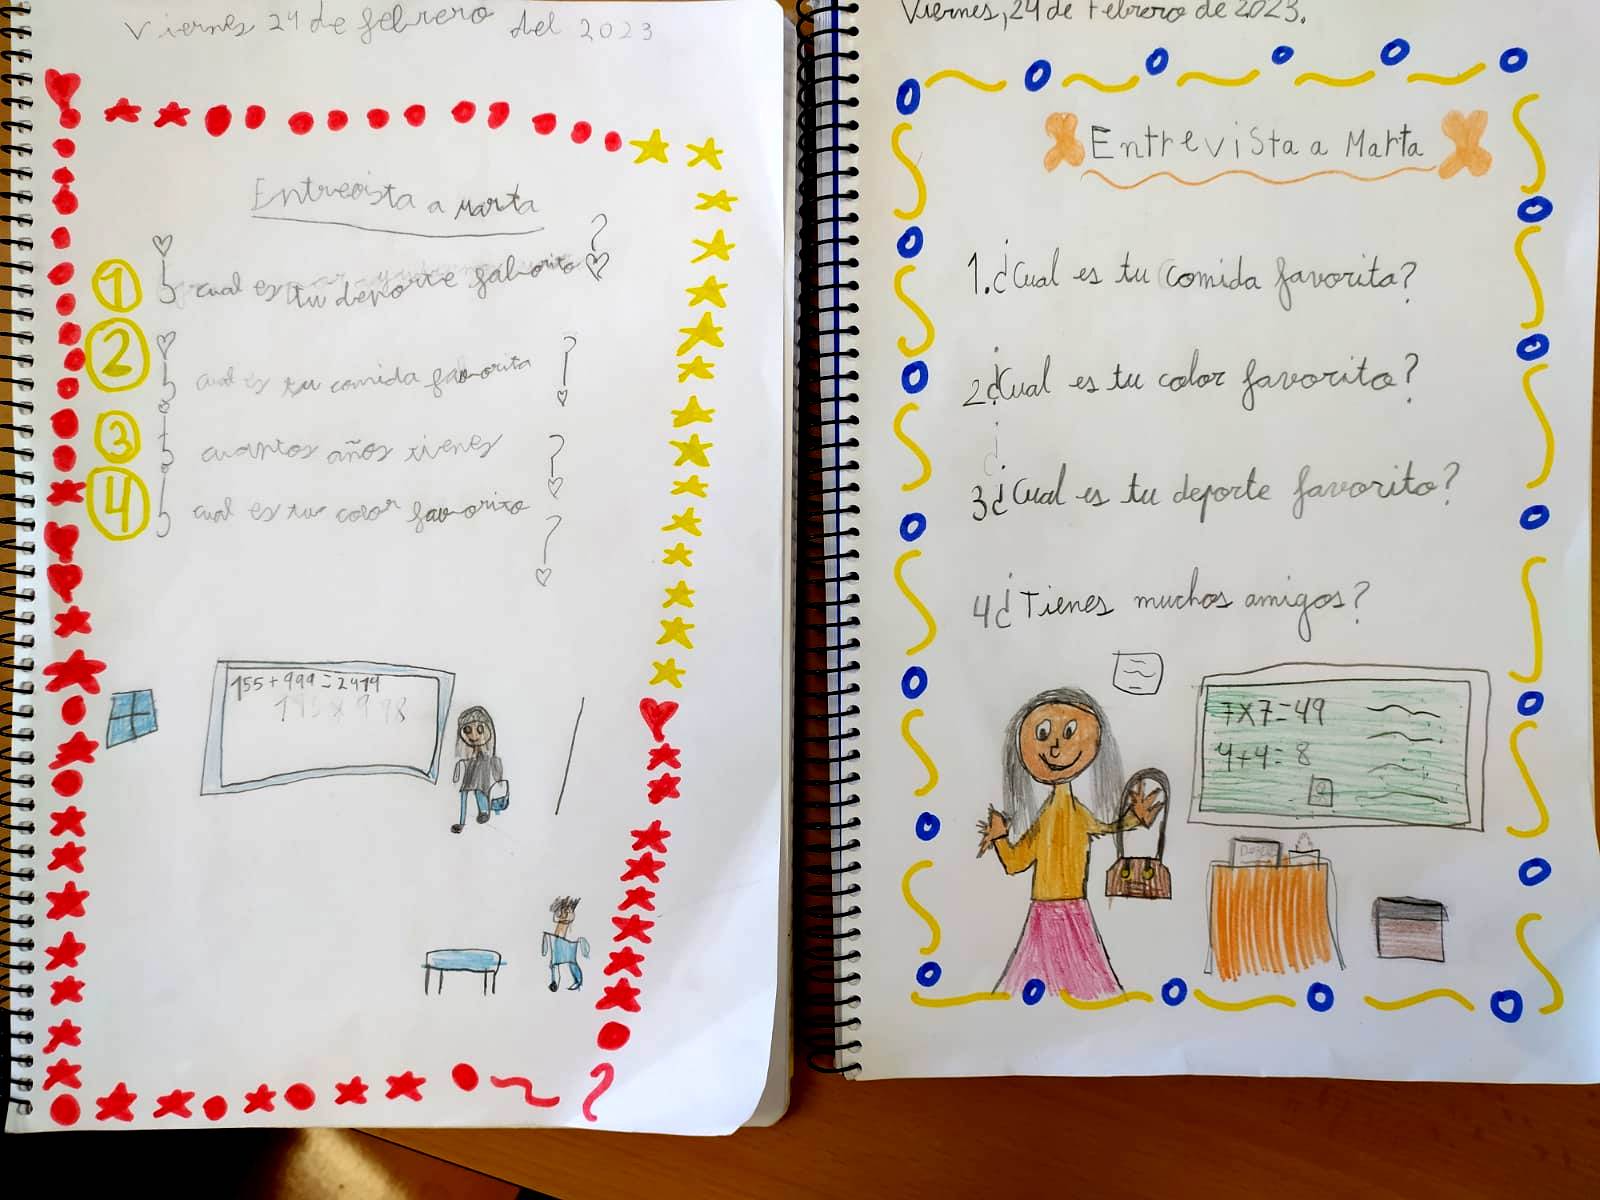 Viernes 24 de febrero del 2023
Entrevista a Marta
1 ¿cual es tu deporte faborito?
2 ¿cual es tu comida favorita?
3 ¿cuantos años tienes?
4 ¿cual es tu color favorito?
155+999=2419
Viernes, 24 de Febrero de 2023.
Entrevista a Marta
1.¿Cual es tu comida favorita?
2¿Cual es tu color favorito?
3¿Cual es tu deporte favorito?
4¿Tienes muchos amigos?
7x7=49
4+4=8